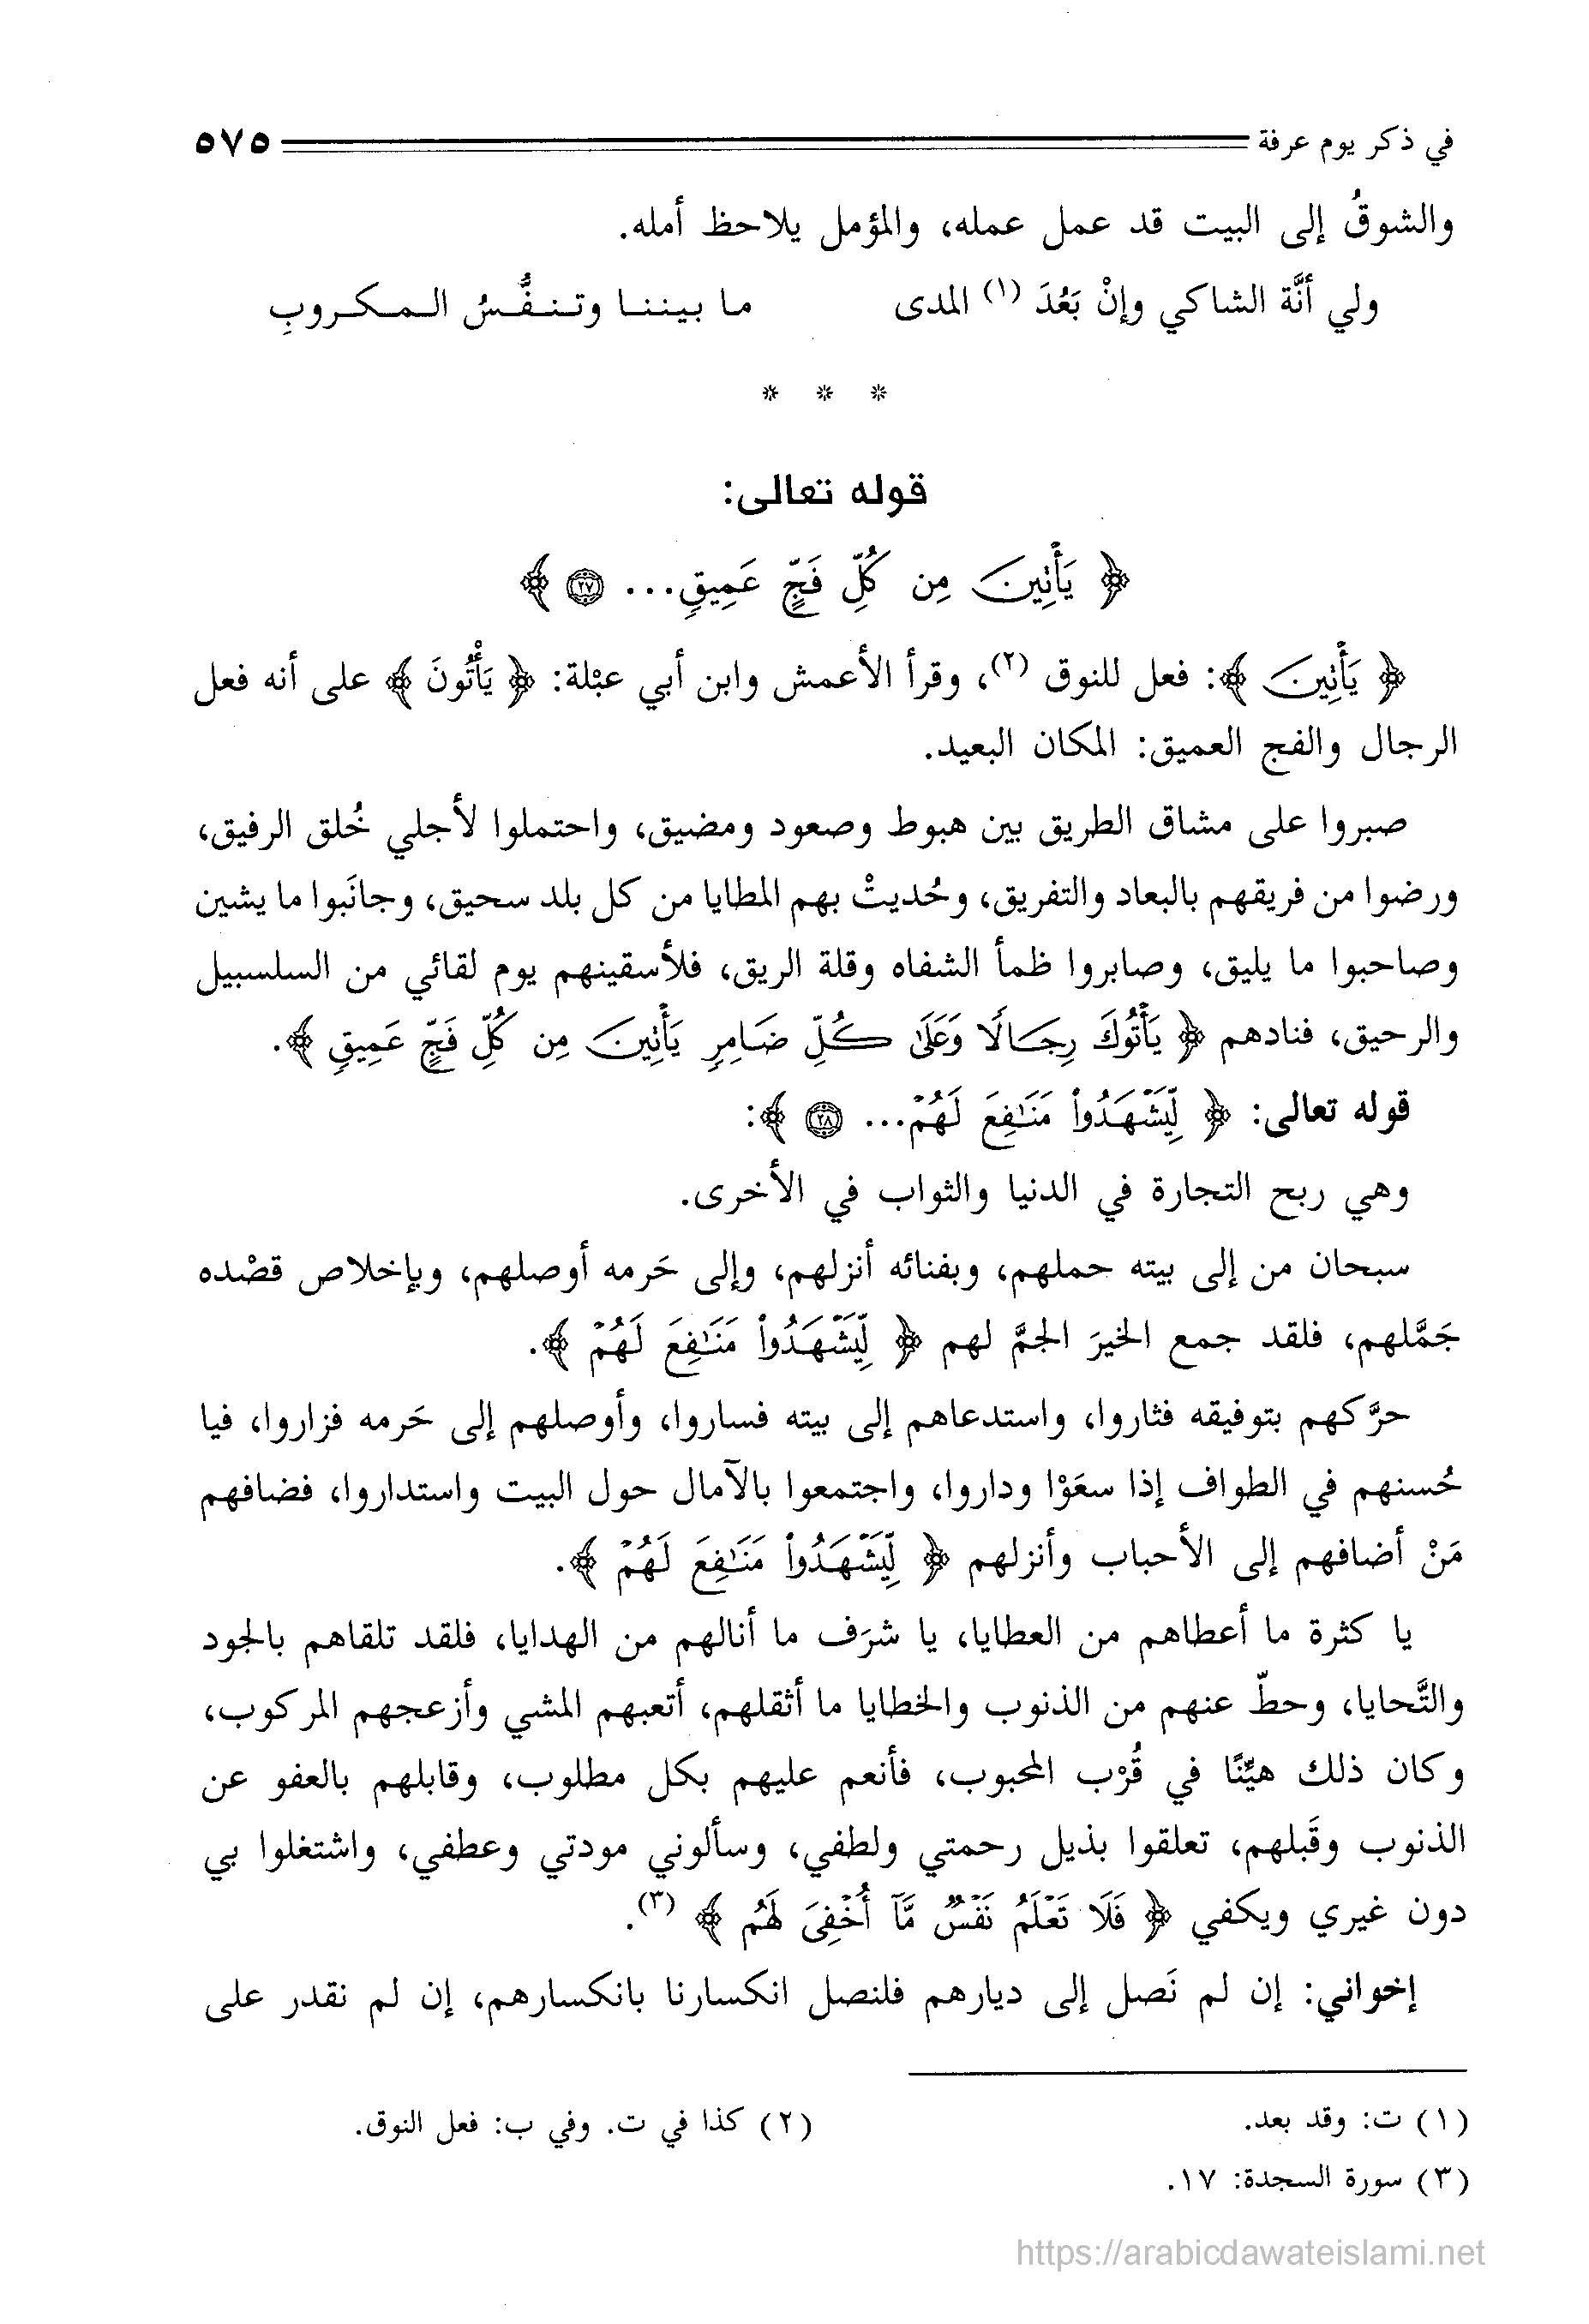 في ذكر يوم عرفة ٥٧٥
والشوقُ إلى البيت قد عمل عمله، والمؤمل يلاحظ أمله.
ولي أنَّة الشاكي وإنْ بَعُدَ (١) المدى ما بيننا وتنفُّسُ المكروبِ
* * *
قوله تعالى:
﴿ يَأْتِينَ مِن كُلِّ فَجٍّ عَمِيقٍ... ٢٧ ﴾
﴿ يَأْتِينَ ﴾: فعل للنوق (٢)، وقرأ الأعمش وابن أبي عبْلة: ﴿ يَأْتُونَ ﴾ على أنه فعل
الرجال والفج العميق: المكان البعيد.
صبروا على مشاق الطريق بين هبوط وصعود ومضيق، واحتملوا لأجلي خُلق الرفيق،
ورضوا من فريقهم بالبعاد والتفريق، وحُديتْ بهم المطايا من كل بلد سحيق، وجانَبوا ما يشين
وصاحبوا ما يليق، وصابروا ظمأ الشفاه وقلة الريق، فلأسقينهم يوم لقائي من السلسبيل
والرحيق، فنادهم ﴿ يَأْتُوكَ رِجَالًا وَعَلَىٰ كُلِّ ضَامِرٍ يَأْتِينَ مِن كُلِّ فَجٍّ عَمِيقٍ ﴾.
قوله تعالى: ﴿ لِّيَشْهَدُواْ مَنَـٰفِعَ لَهُمْ... ٢٨ ﴾:
وهي ربح التجارة في الدنيا والثواب في الأخرى.
سبحان من إلى بيته حملهم، وبفنائه أنزلهم، وإلى حَرمه أوصلهم، وبإخلاص قصْده
جَمَّلهم، فلقد جمع الخيرَ الجمَّ لهم ﴿ لِّيَشْهَدُواْ مَنَـٰفِعَ لَهُمْ ﴾.
حرَّكهم بتوفيقه فثاروا، واستدعاهم إلى بيته فساروا، وأوصلهم إلى حَرمه فزاروا، فيا
حُسنهم في الطواف إذا سعَوْا وداروا، واجتمعوا بالآمال حول البيت واستداروا، فضافهم
مَنْ أضافهم إلى الأحباب وأنزلهم ﴿ لِّيَشْهَدُواْ مَنَـٰفِعَ لَهُمْ ﴾.
يا كثرة ما أعطاهم من العطايا، يا شرَف ما أنالهم من الهدايا، فلقد تلقاهم بالجود
والتَّحايا، وحطّ عنهم من الذنوب والخطايا ما أثقلهم، أتعبهم المشي وأزعجهم المركوب،
وكان ذلك هيِّنًا في قُرْب المحبوب، فأنعم عليهم بكل مطلوب، وقابلهم بالعفو عن
الذنوب وقَبلهم، تعلقوا بذيل رحمتي ولطفي، وسألوني مودتي وعطفي، واشتغلوا بي
دون غيري ويكفي ﴿ فَلَا تَعْلَمُ نَفْسٌ مَّآ أُخْفِىَ لَهُم ﴾ (٣).
إخواني: إن لم نَصل إلى ديارهم فلنصل انكسارنا بانكسارهم، إن لم نقدر على
(١) ت: وقد بعد. (٢) كذا في ت. وفي ب: فعل النوق.
(٣) سورة السجدة: ١٧.
https://arabicdawateislami.net